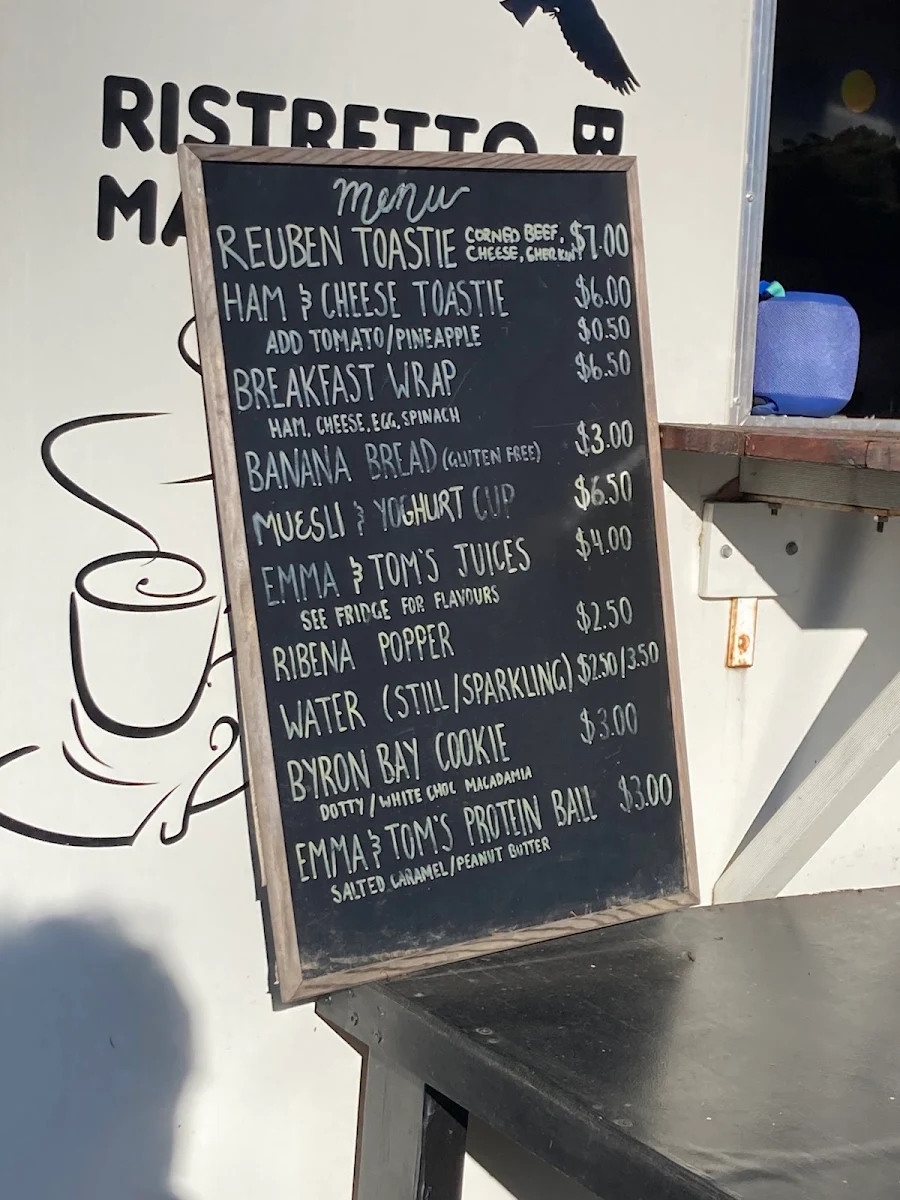 RISTRETTO
B
MA
menu
REUBEN TOASTIE CORNED BEEF, CHEESE, GHERKIN $7.00
HAM & CHEESE TOASTIE $6.00
ADD TOMATO/PINEAPPLE $0.50
BREAKFAST WRAP $6.50
HAM, CHEESE, EGG, SPINACH
BANANA BREAD (GLUTEN FREE) $3.00
MUESLI & YOGHURT CUP $6.50
EMMA & TOM'S JUICES $4.00
SEE FRIDGE FOR FLAVOURS
RIBENA POPPER $2.50
WATER (STILL/SPARKLING) $2.50/3.50
BYRON BAY COOKIE $3.00
DOTTY/WHITE CHOC MACADAMIA
EMMA & TOM'S PROTEIN BALL $3.00
SALTED CARAMEL/PEANUT BUTTER